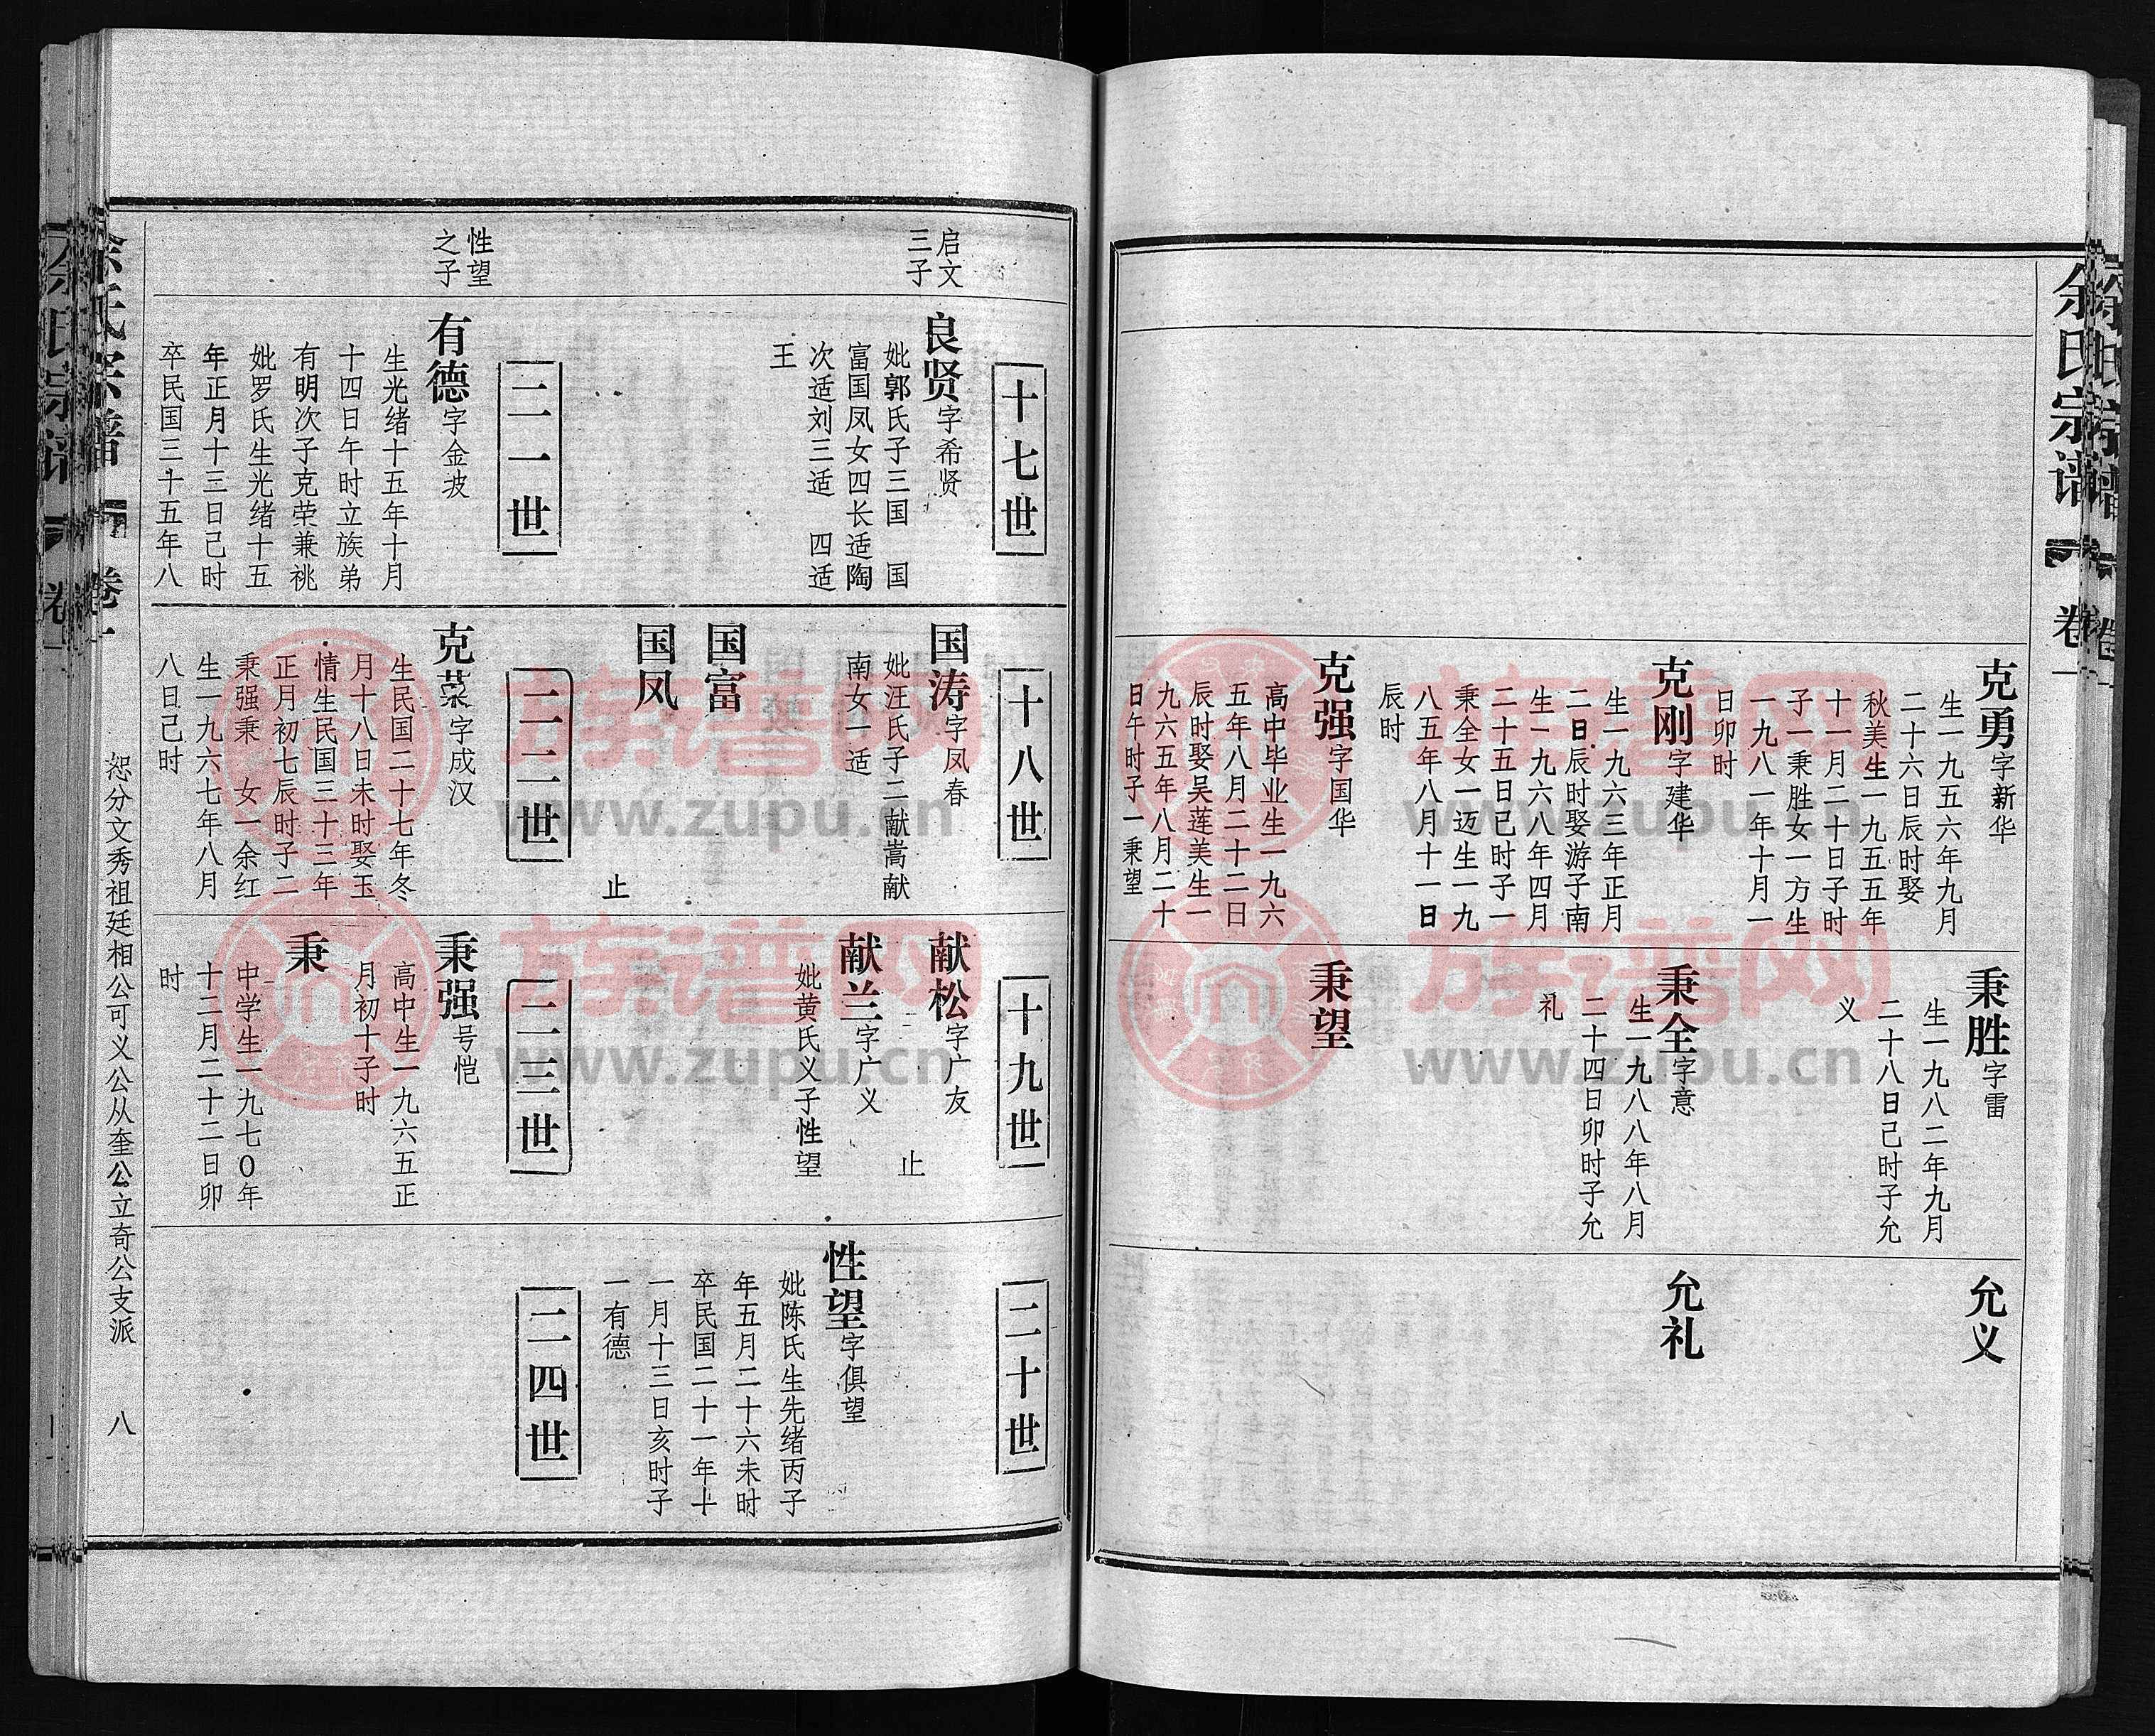 余氏宗谱
卷一
克勇字新华
生一九五六年九月
二十六日辰时娶
秋美生一九五五年
十一月二十日子时
子一秉胜女一方生
一九八一年十月一
日卯时
克刚字建华
生一九六三年正月
二日辰时娶游子南
生一九六八年四月
二十五日己时子一
秉全女一迈生一九
八五年八月十一日
辰时
克强字国华
高中毕业生一九六
五年八月二十二日
辰时娶吴莲美生一
九六五年八月二十
日午时子一秉望
秉胜字雷
生一九八二年九月
二十八日己时子允
义
秉全字意
生一九八八年八月
二十四日卯时子允
礼
秉望
允义
允礼
启文
三子
性望
之子
十七世
良贤字希贤
妣郭氏子三国 国
富国凤女四长适陶
次适刘三适 四适
王
二一世
有德字金坡
生光绪十五年十月
十四日午时立族弟
有明次子克荣兼祧
妣罗氏生光绪十五
年正月十三日己时
卒民国三十五年八
十八世
国涛字凤春
妣汪氏子二献嵩献
南女一适
国富
国凤
止
二二世
克菜字成汉
生民国二十七年冬
月十八日未时娶玉
情生民国三十三年
正月初七辰时子二
秉强秉 女一余红
生一九六七年八月
八日己时
十九世
献松字广友
止
献兰字广义
妣黄氏义子性望
二三世
秉强号恺
高中生一九六五正
月初十子时
秉
中学生一九七0年
十二月二十二日卯
时
二十世
性望字俱望
妣陈氏生先绪丙子
年五月二十六未时
卒民国二十一年十
一月十三日亥时子
一有德
二四世
恕分文秀祖廷相公可义公从奎公立奇公支派 八
余氏宗谱
卷一
族谱网
www.zupu.cn
族谱网
www.zupu.cn
族谱网
www.zupu.cn
族谱网
www.zupu.cn